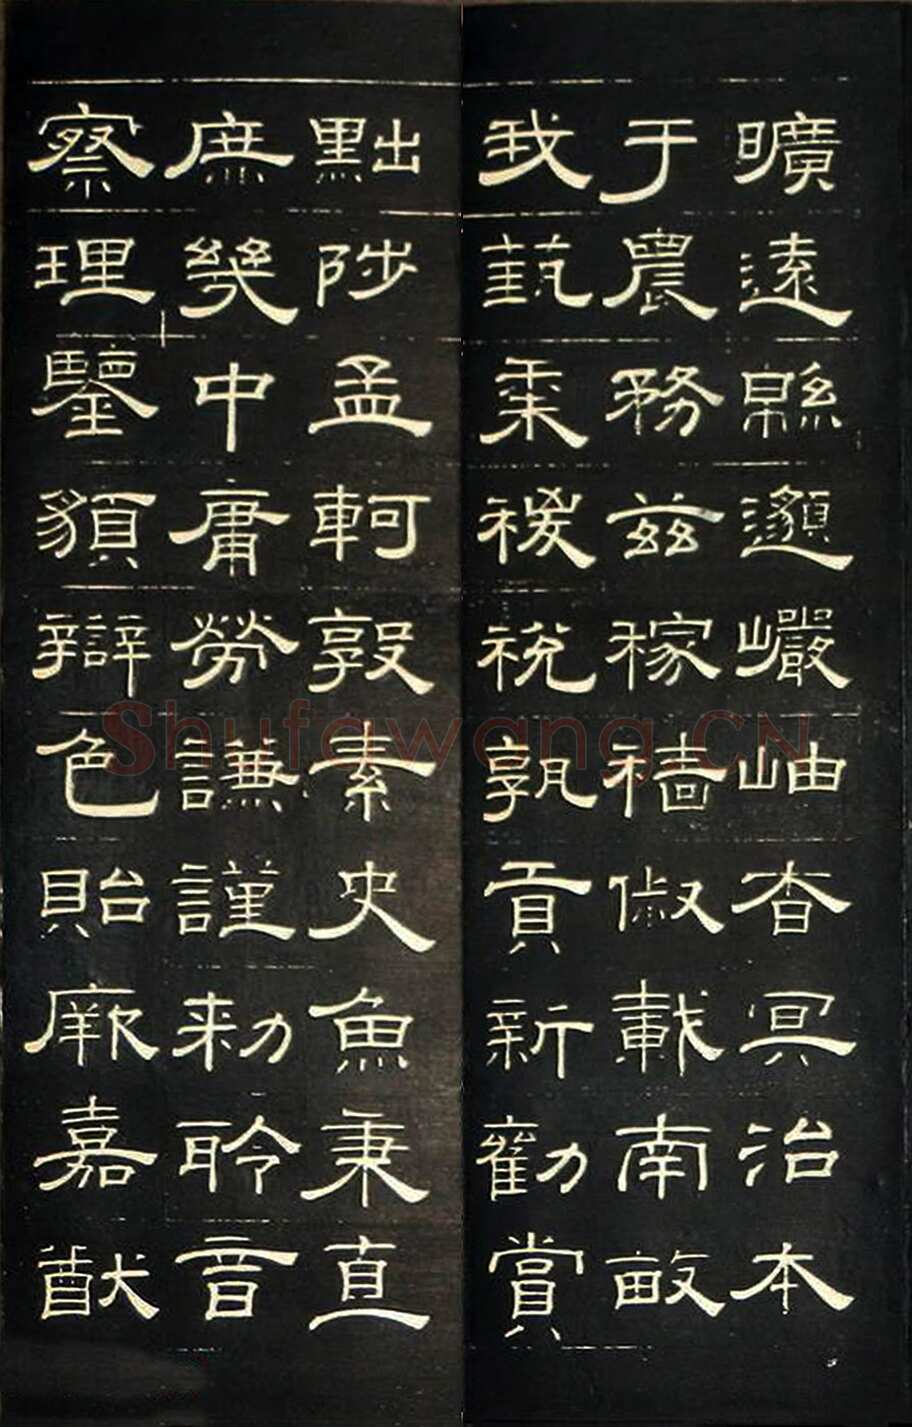 曠遠緜邈巗岫杳冥治本
于農務茲稼穡俶載南畝
我蓺黍稷稅孰貢新勸賞
黜陟孟軻敦素史魚秉直
庶幾中庸勞謙謹勑聆音
察理鑒䫉辯色貽厥嘉猷
Shufawang.CN